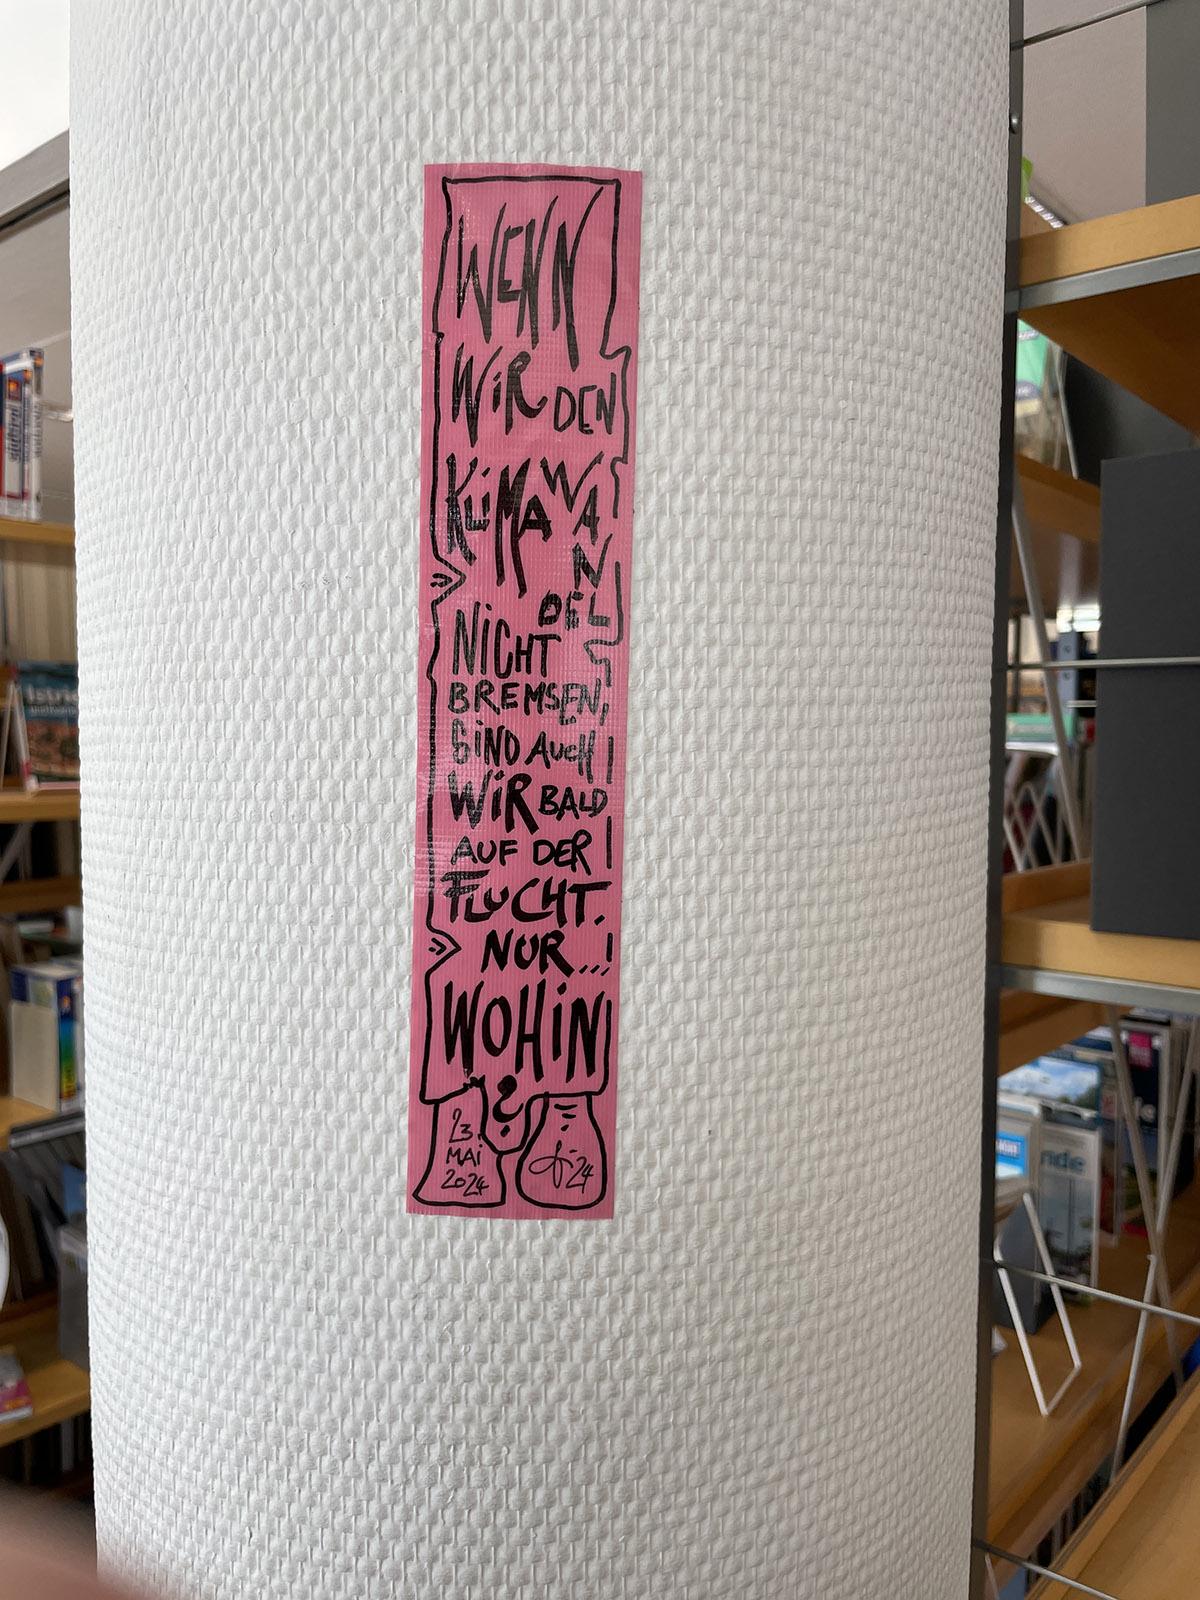 WENN
WIR DEN
KLIMAWA
N
DEL
NICHT
BREMSEN,
SIND AUCH
WIR BALD
AUF DER
FLUCHT.
NUR...
WOHIN
?
23.
MAI
2024
24
Istrie
nde